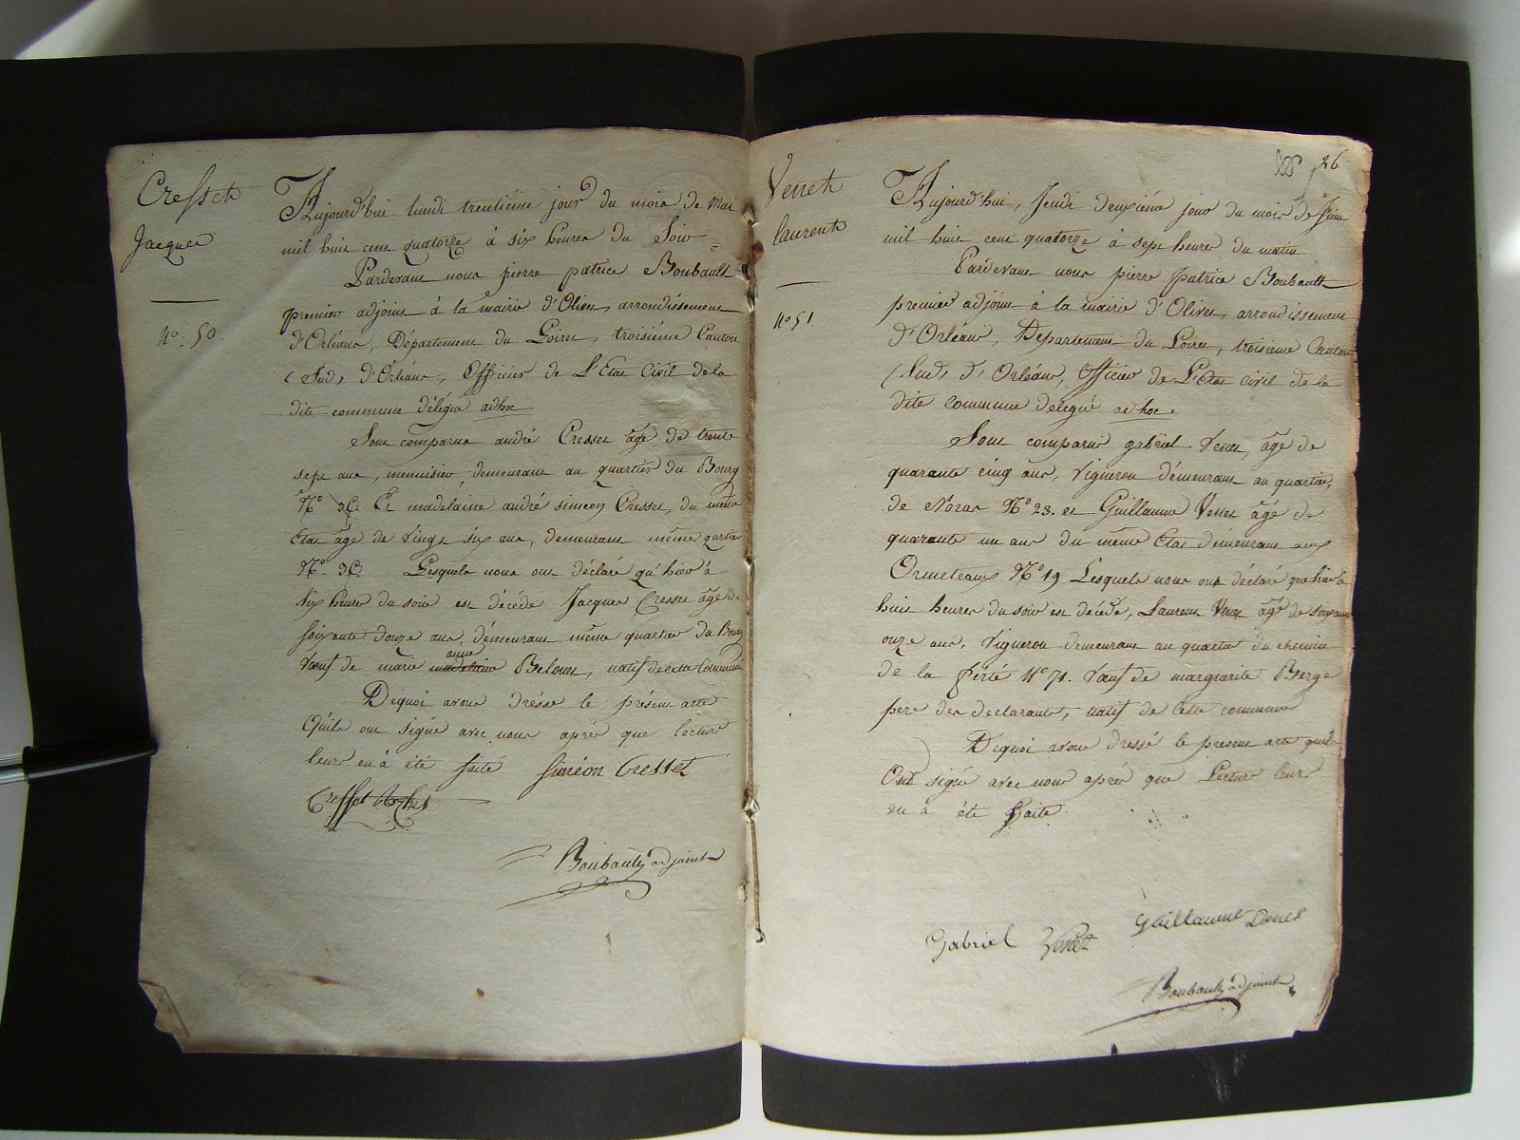 Cresset
Jacques
N° 50
Aujourd'hui lundi trentième jour du mois de Mai
mil huit cent quatorze à six heures du Soir
Pardevant nous pierre patrice Boubault
premier adjoint à la mairie d'Olivet, arrondissement
d'Orléans, Département du Loiret, troisième Canton
(Sud) d'Orléans, Officier de L'Etat Civil de la
dite commune délégué adhoc
Sont comparus andré Cresset âgé de trente
sept ans, menuisier, demeurant au quartier du Bourg
N° 36 Et madelaine andré simeon Cresset, du même
Etat âgé de vingt six ans, demeurant même quartier
N° 36 Lesquels nous ont déclaré qu'hier à
six heures du soir est décédé Jacques Cresset âgé de
soixante douze ans, demeurant même quartier du Bourg
Veuf de marie anne madelaine natif de cette Commune
Dequoi avons dressé le présent acte
Qu'ils ont signé avec nous après que lecture
leur en à été faite simeon Cresset
Cresset
Boubault adjoint
26
Verret
laurent
N° 51
Aujourd'hui, Jeudi deuxième jour du mois de Juin
mil huit cent quatorze à sept heures du matin
Pardevant nous pierre patrice Boubault
premier adjoint à la mairie d'Olivet, arrondissement
d'Orléans, Département du Loiret, troisieme Canton
(Sud) d'Orléans, Officier de L'Etat civil de la
dite commune delegué ad hoc.
Sont comparus gabriel Verret, âgé de
quarante cinq ans, Vigneron demeurant au quartier
de N° 28. et Guillaume Verret âgé de
quarante un ans du même Etat demeurant aux
Ormeteaux N° 19 Lesquels nous ont déclaré que hier à
huit heures du soir est décédé, Laurent Verret âgé de soixante
onze ans, Vigneron demeurant au quartier du chemin
de la ferté N° 71. Veuf de margueritte Berge
pere des declarants, natif de cette commune
Dequoi avons dressé le present acte qu'ils
Ont signé avec nous après que Lecture leur
en à été faite
Gabriel Veret Guillaume Veret
Boubault adjoint